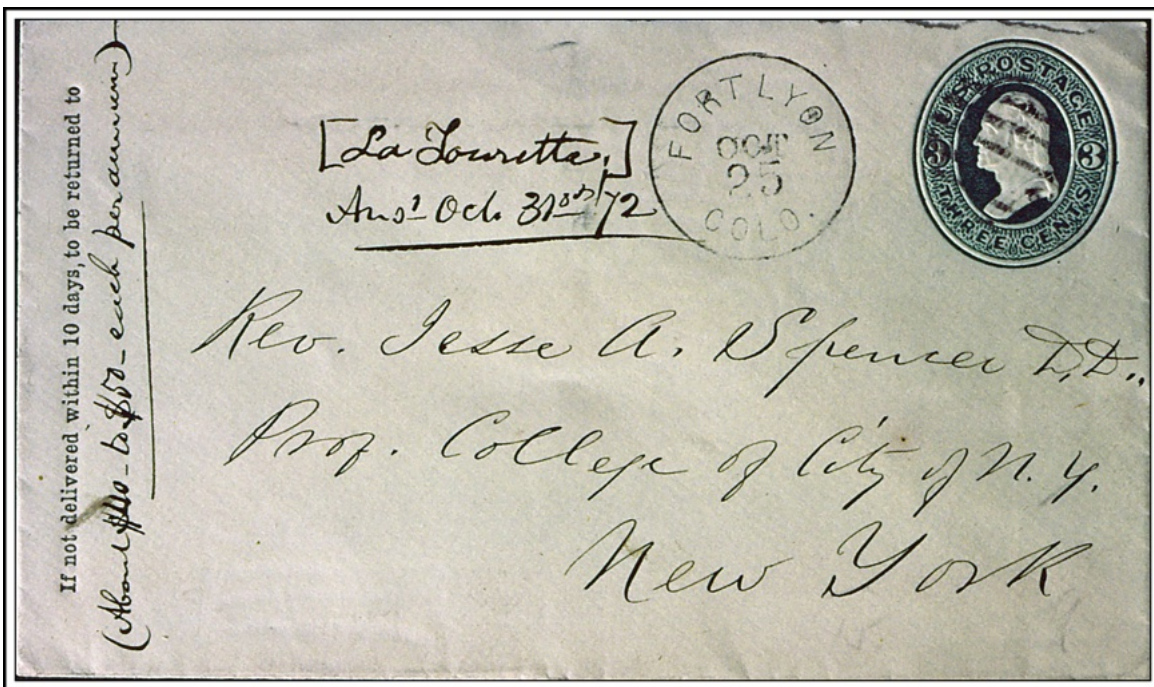 If not delivered within 10 days, to be returned to
(About $40- to $50- each per annum)
[La Tourette.]
Ansd Oct. 31st/72
FORT LYON
OCT
25
COLO.
U.S. POSTAGE
3 3
THREE CENTS
Rev. Jesse A. Spencer D.D.,
Prof. College of City of N.Y.
New York